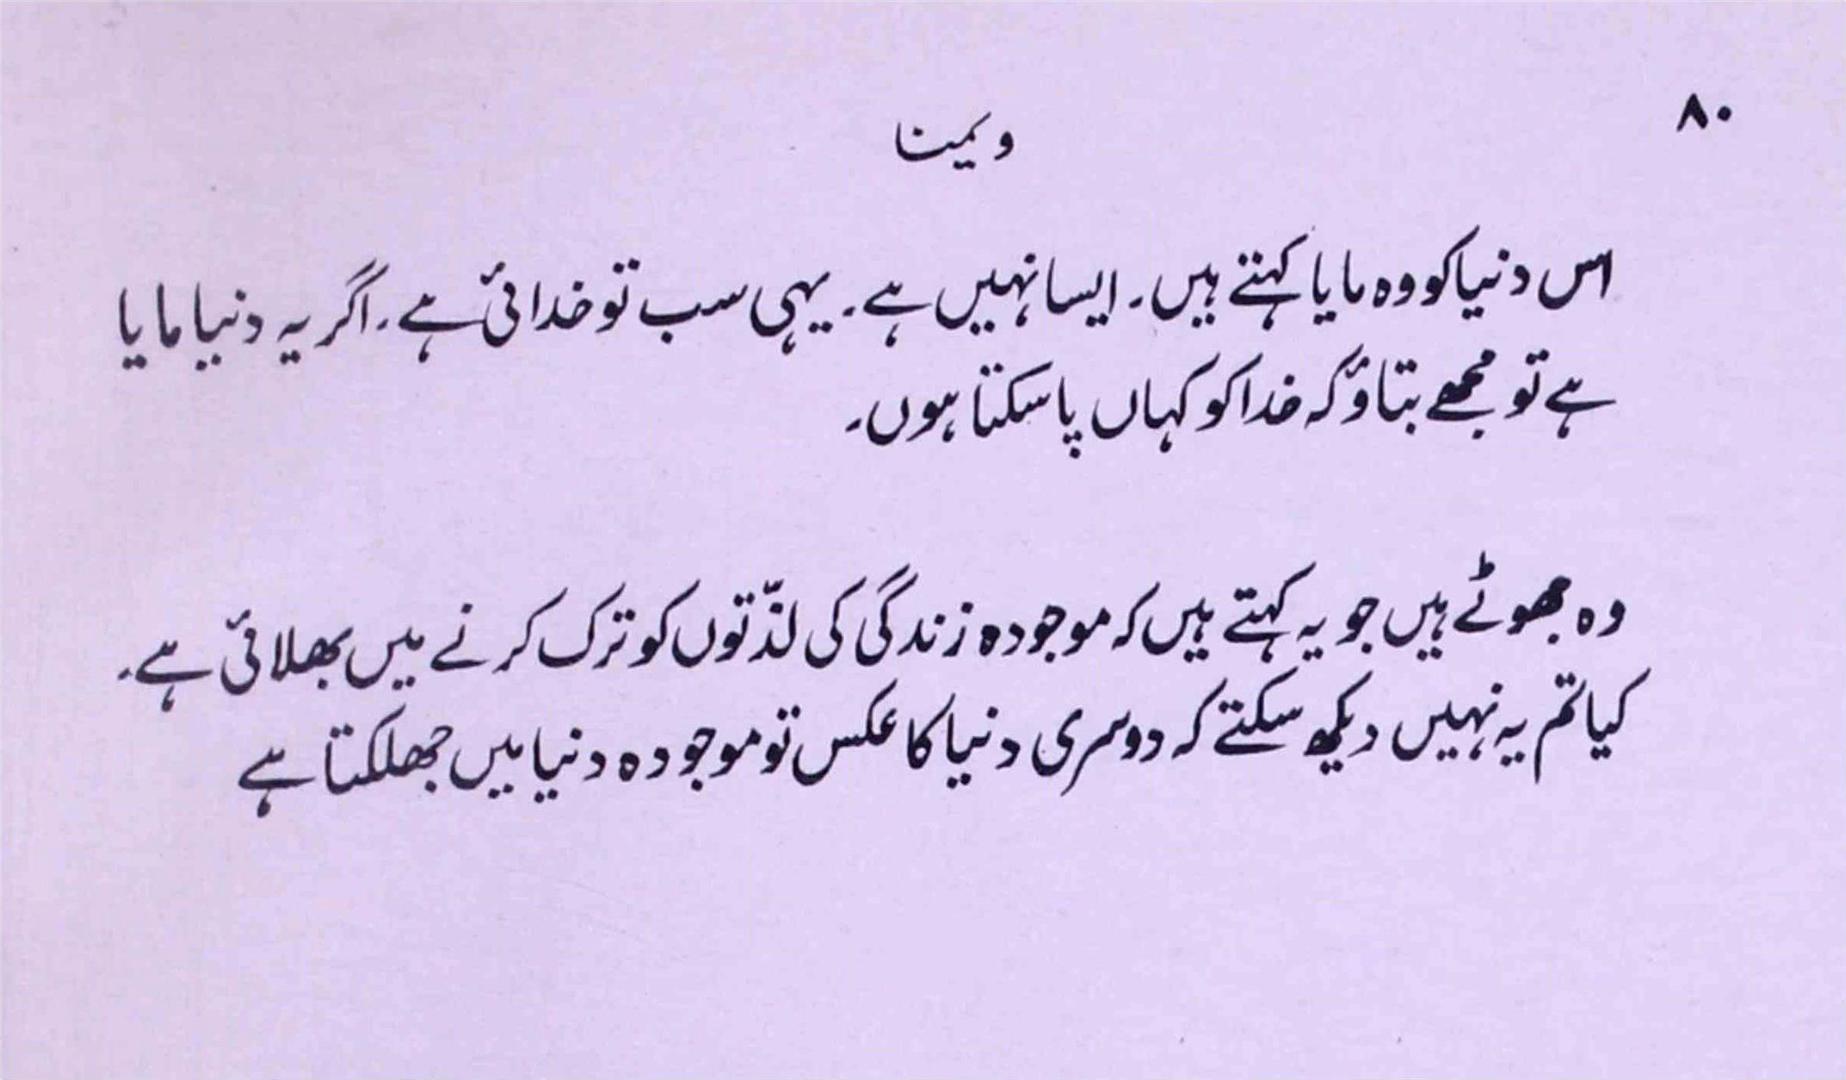 ۸۰
ویمینا
اس دنیا کو وہ مایا کہتے ہیں۔ ایسا نہیں ہے۔ یہی سب تو خدائی ہے۔ اگر یہ دنیا مایا
ہے تو مجھے بتاؤ کہ خدا کو کہاں پا سکتا ہوں۔
وہ جھوٹے ہیں جو یہ کہتے ہیں کہ موجودہ زندگی کی لذّتوں کو ترک کرنے میں بھلائی ہے۔
کیا تم یہ نہیں دیکھ سکتے کہ دوسری دنیا کا عکس تو موجودہ دنیا میں جھلکتا ہے